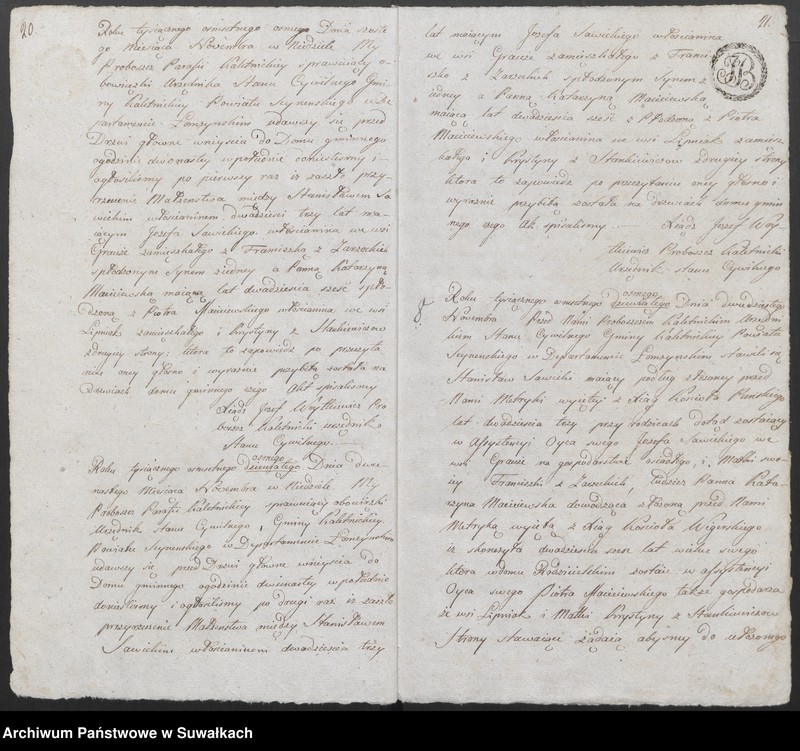 20.
Roku tysiącznego osmsetnego osmego Dnia szoste
go Miesiąca Novembra w Niedziele My
Proboszcz Parafii Kaletnickiey i sprawuiący o-
bowiązki Urzędnika Stanu Cywilnego Gmi
ny Kaletnickiey Powiatu Seynenskiego w De
partamencie Łomzynskim udawszy się przed
Drzwi głowne wniyścia do Domu gminnego
ogodzinie dwonastey w południe oznaimiłismy i-
ogłosiliśmy po pierwszy raz iz zaszło przy-
rzeczenie Małzenstwa między Stanisławem Sa
wickim włoscianinem dwadziescia trzy lat ma-
iącym Jozefa Sawickiego włoscianina we wsi
Grauze zamieszkałego z Franciszka z Zarzeckich
spłodzonym Synem ziedney a Panną Katarzyną
Maciiewską maiącą lat dwadziescia szesc spło-
dzoną z Piotra Maciiewskiego włoscianina we wsi
Lipniak zamieszkałego i Krystyny z Stankiewiczow
zdrugiey strony: ktora to zapowiedz po przeczyta
niu oney głosno i wyraznie przybita została na
Drzwiach domu gminnego czego Akt spisalismy
Xiądz Jozef Woytkiewicz Pro
boszcz Kaletnicki urzędnik
Stanu Cywilnego. —
osmego
Roku tysiącznego osmsetnego dziewiątego Dnia dwu-
nastego Miesiąca Novembra w Niedziele. My
Proboszcz Parafii Kaletnickiey sprawuiący obowiązki
Urzędnika stanu Cywilnego, Gminy Kaletnickiey.
Powiatu Seynenskiego w Departamencie Łomzynskim
udawszy się przed Drzwi głowne wniyścia do
Domu gminnego ogodzinie dwunastey w południe
doniesliśmy i ogłosiliśmy po drugi raz iz zaszło
przyrzeczenie Małzenstwa między Stanisławem
Sawickim włoscianinem dwadziescia trzy
21.
lat maiącym Jozefa Sawickiego włoscianina
we wsi Grauze zamieszkałego z Franci-
szka z Zarzeckich spłodzonym Synem z
iedney a Panną Katarzyną Maciiewską
maiącą lat dwadziescia szesc z płodzoną z Piotra
Maciiewskiego włoscianina we wsi Lipniak zamiesz
kałego i Krystyny z Stankiewiczow zdrugiey strony
ktora to zapowiedz po przeczytaniu oney głosno i
wyraznie przybita została na drzwiach domu gmin
nego czego Akt spisalismy — Xiądz Jozef Woy-
tkiewicz Proboszcz Kaletnicki
Urzędnik stanu Cywilnego
8.
osmego
Roku tysiącznego osmsetnego dziewiątego Dnia dwudziestego
Novembra Przed Nami Proboszczem Kaletnickim Urzędni
kiem Stanu Cywilnego Gminy Kaletnickiey Powiatu
Seynenskiego w Departamencie Łomzynskim stawili się
Stanisław Sawicki maiący podług złozoney przed
Nami Metryki wyiętey z Xiąg Koscioła Punskiego
lat dwadziescia trzy przy rodzicach dotąd zostaiący
w Assystencyi Oyca swego Jozefa Sawickiego we
wsi Grauze na gospodarstwie osiadłego, i Matki swo-
iey Franciszki z Zarzeckich, tudziesz Panna Kata-
rzyna Maciiewska dowodząca złozoną przed Nami
Metryką wyiętą z Xiąg Koscioła Wigierskiego
iz skonczyła dwadziescia szesc lat wieku swego
ktora wdomu Rodzicielskim zostaie w assystencyi
Oyca swego Piotra Maciiewskiego także gospodarza
ze wsi Lipniak i Matki Krystyny z Stankiewiczow
Strony stawaiące ządaią abysmy do ułozonego
Archiwum Państwowe w Suwałkach